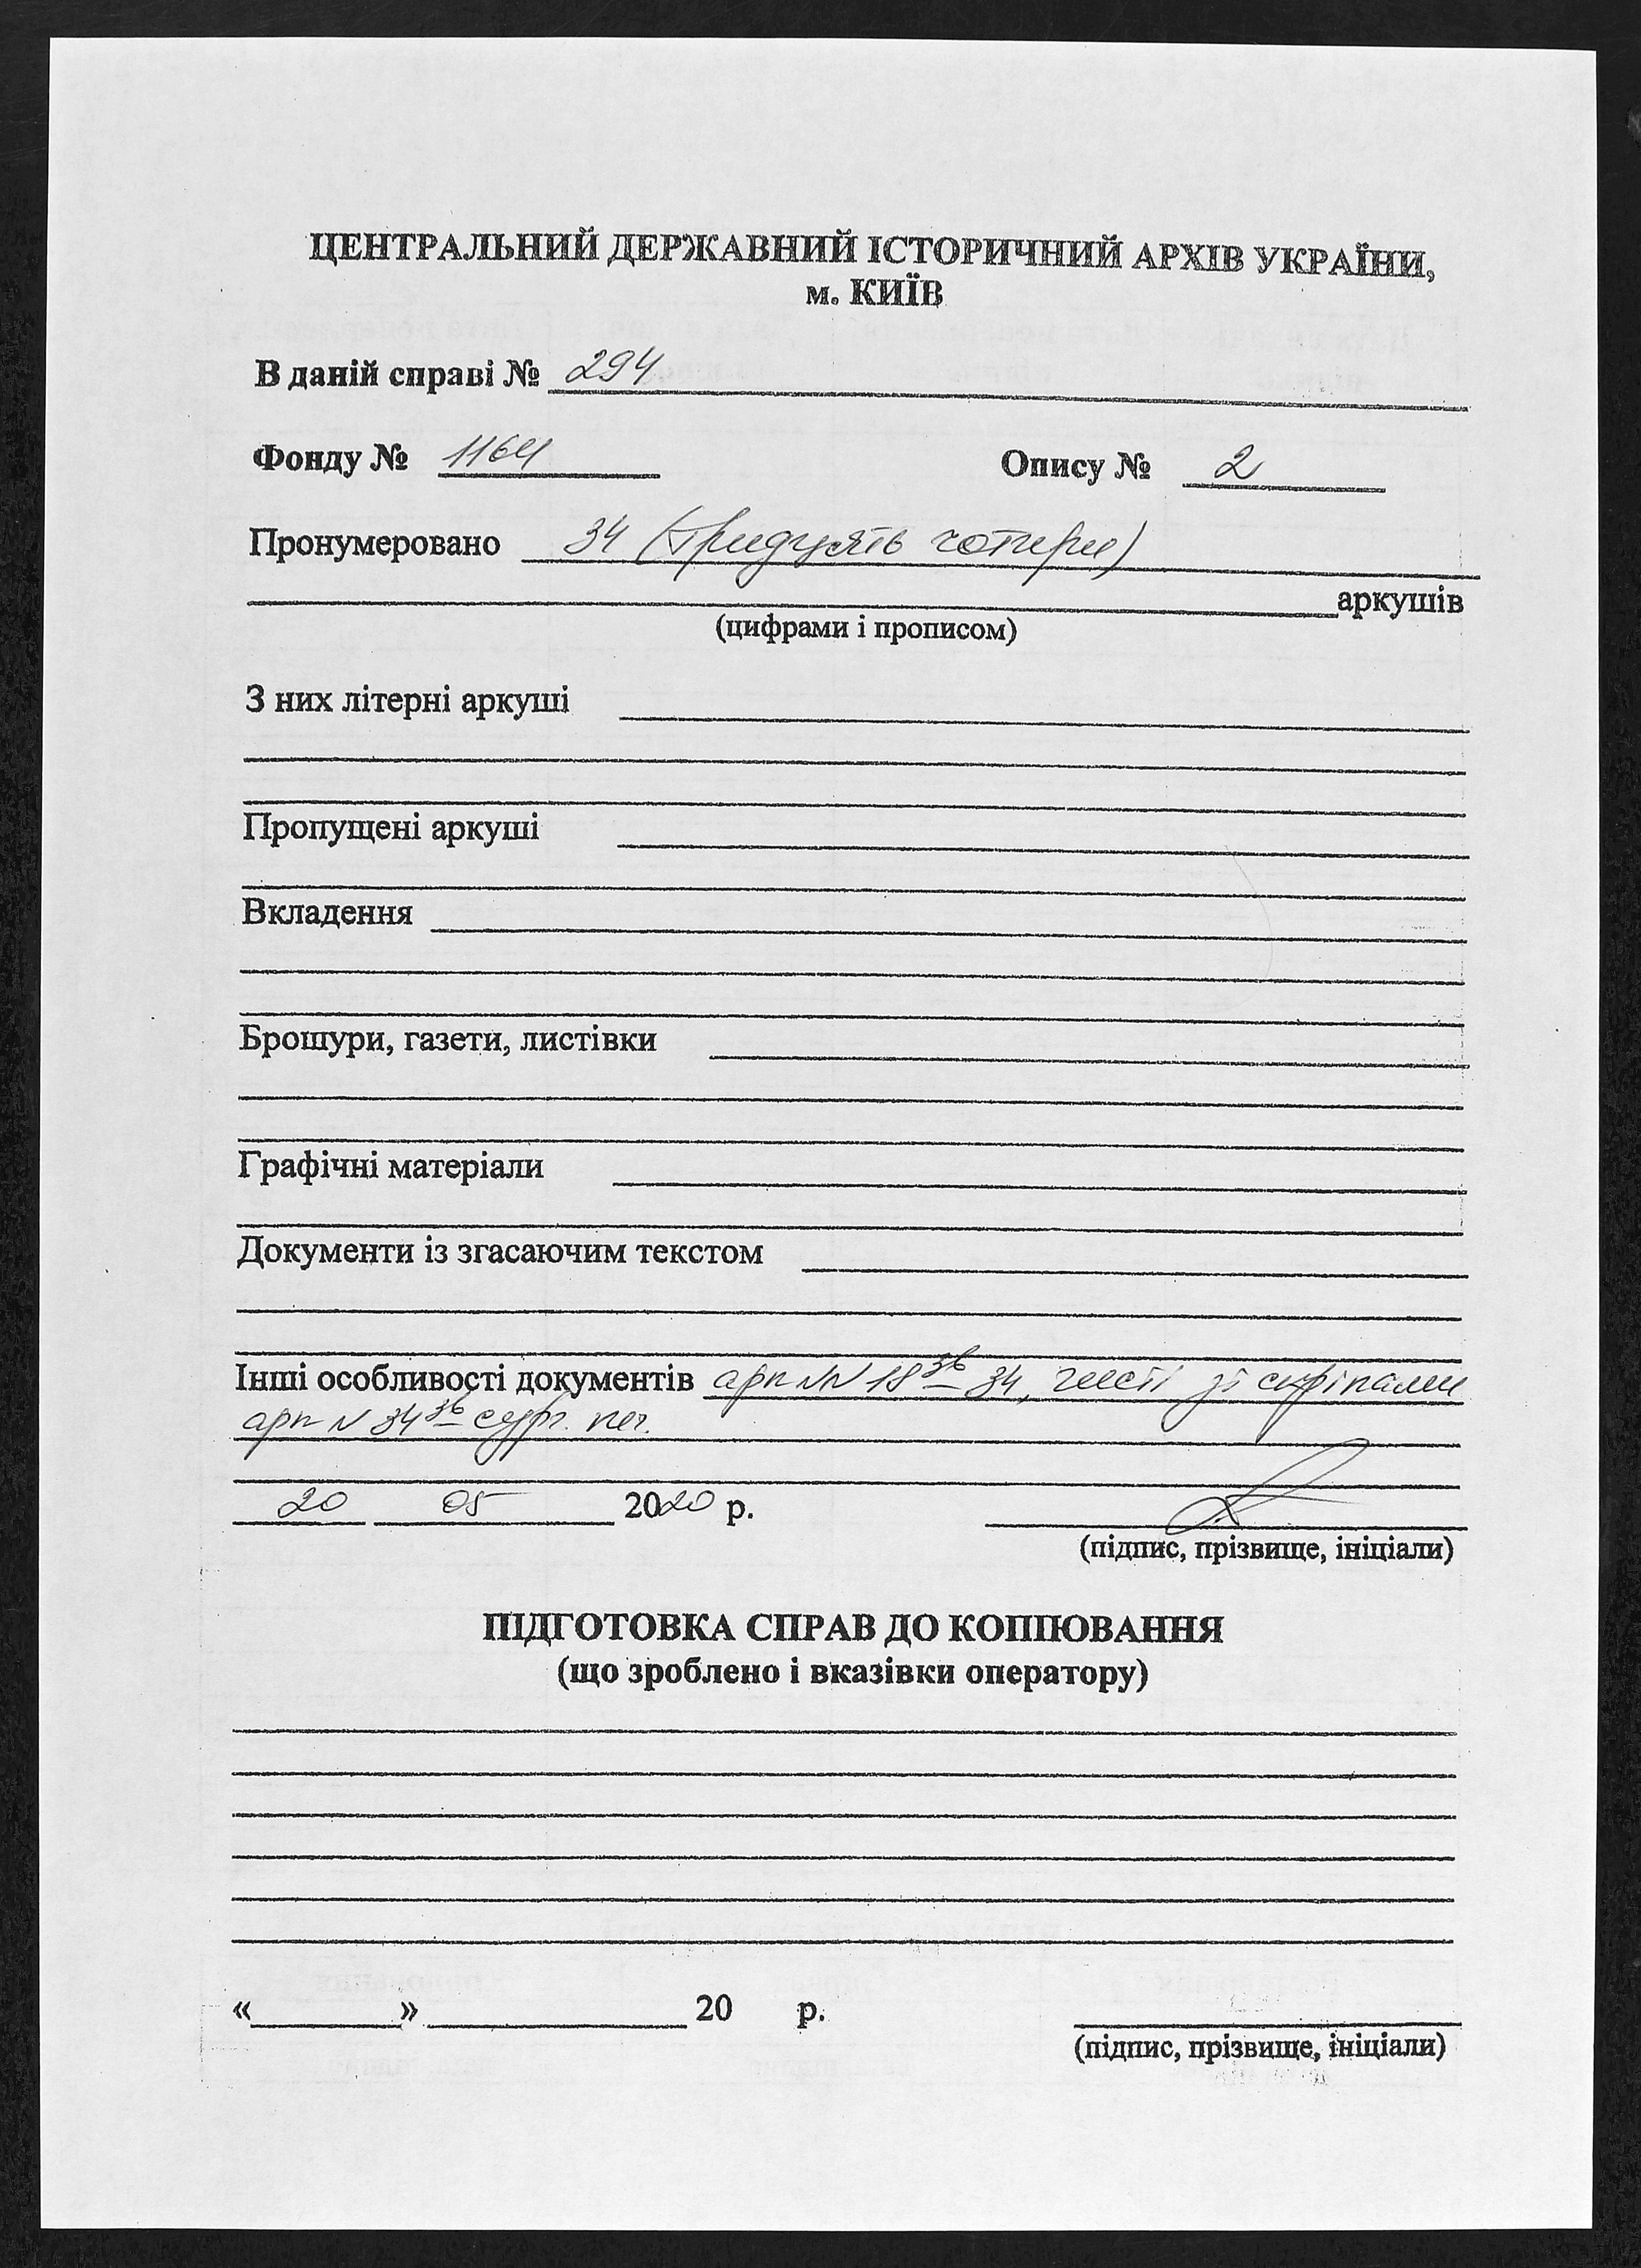 ЦЕНТРАЛЬНИЙ ДЕРЖАВНИЙ ІСТОРИЧНИЙ АРХІВ УКРАЇНИ,
м. КИЇВ
В даній справі № 294
Фонду № 1164 Опису № 2
Пронумеровано 34 (тридцять чотири)
аркушів
(цифрами і прописом)
З них літерні аркуші
Пропущені аркуші
Вкладення
Брошури, газети, листівки
Графічні матеріали
Документи із згасаючим текстом
Інші особливості документів арк NN 18зв 34, чисті зі скріпами
арк N 34зв сург. печ.
20 05 2020 р.
(підпис, прізвище, ініціали)
ПІДГОТОВКА СПРАВ ДО КОПІЮВАННЯ
(що зроблено і вказівки оператору)
« » 20 р.
(підпис, прізвище, ініціали)